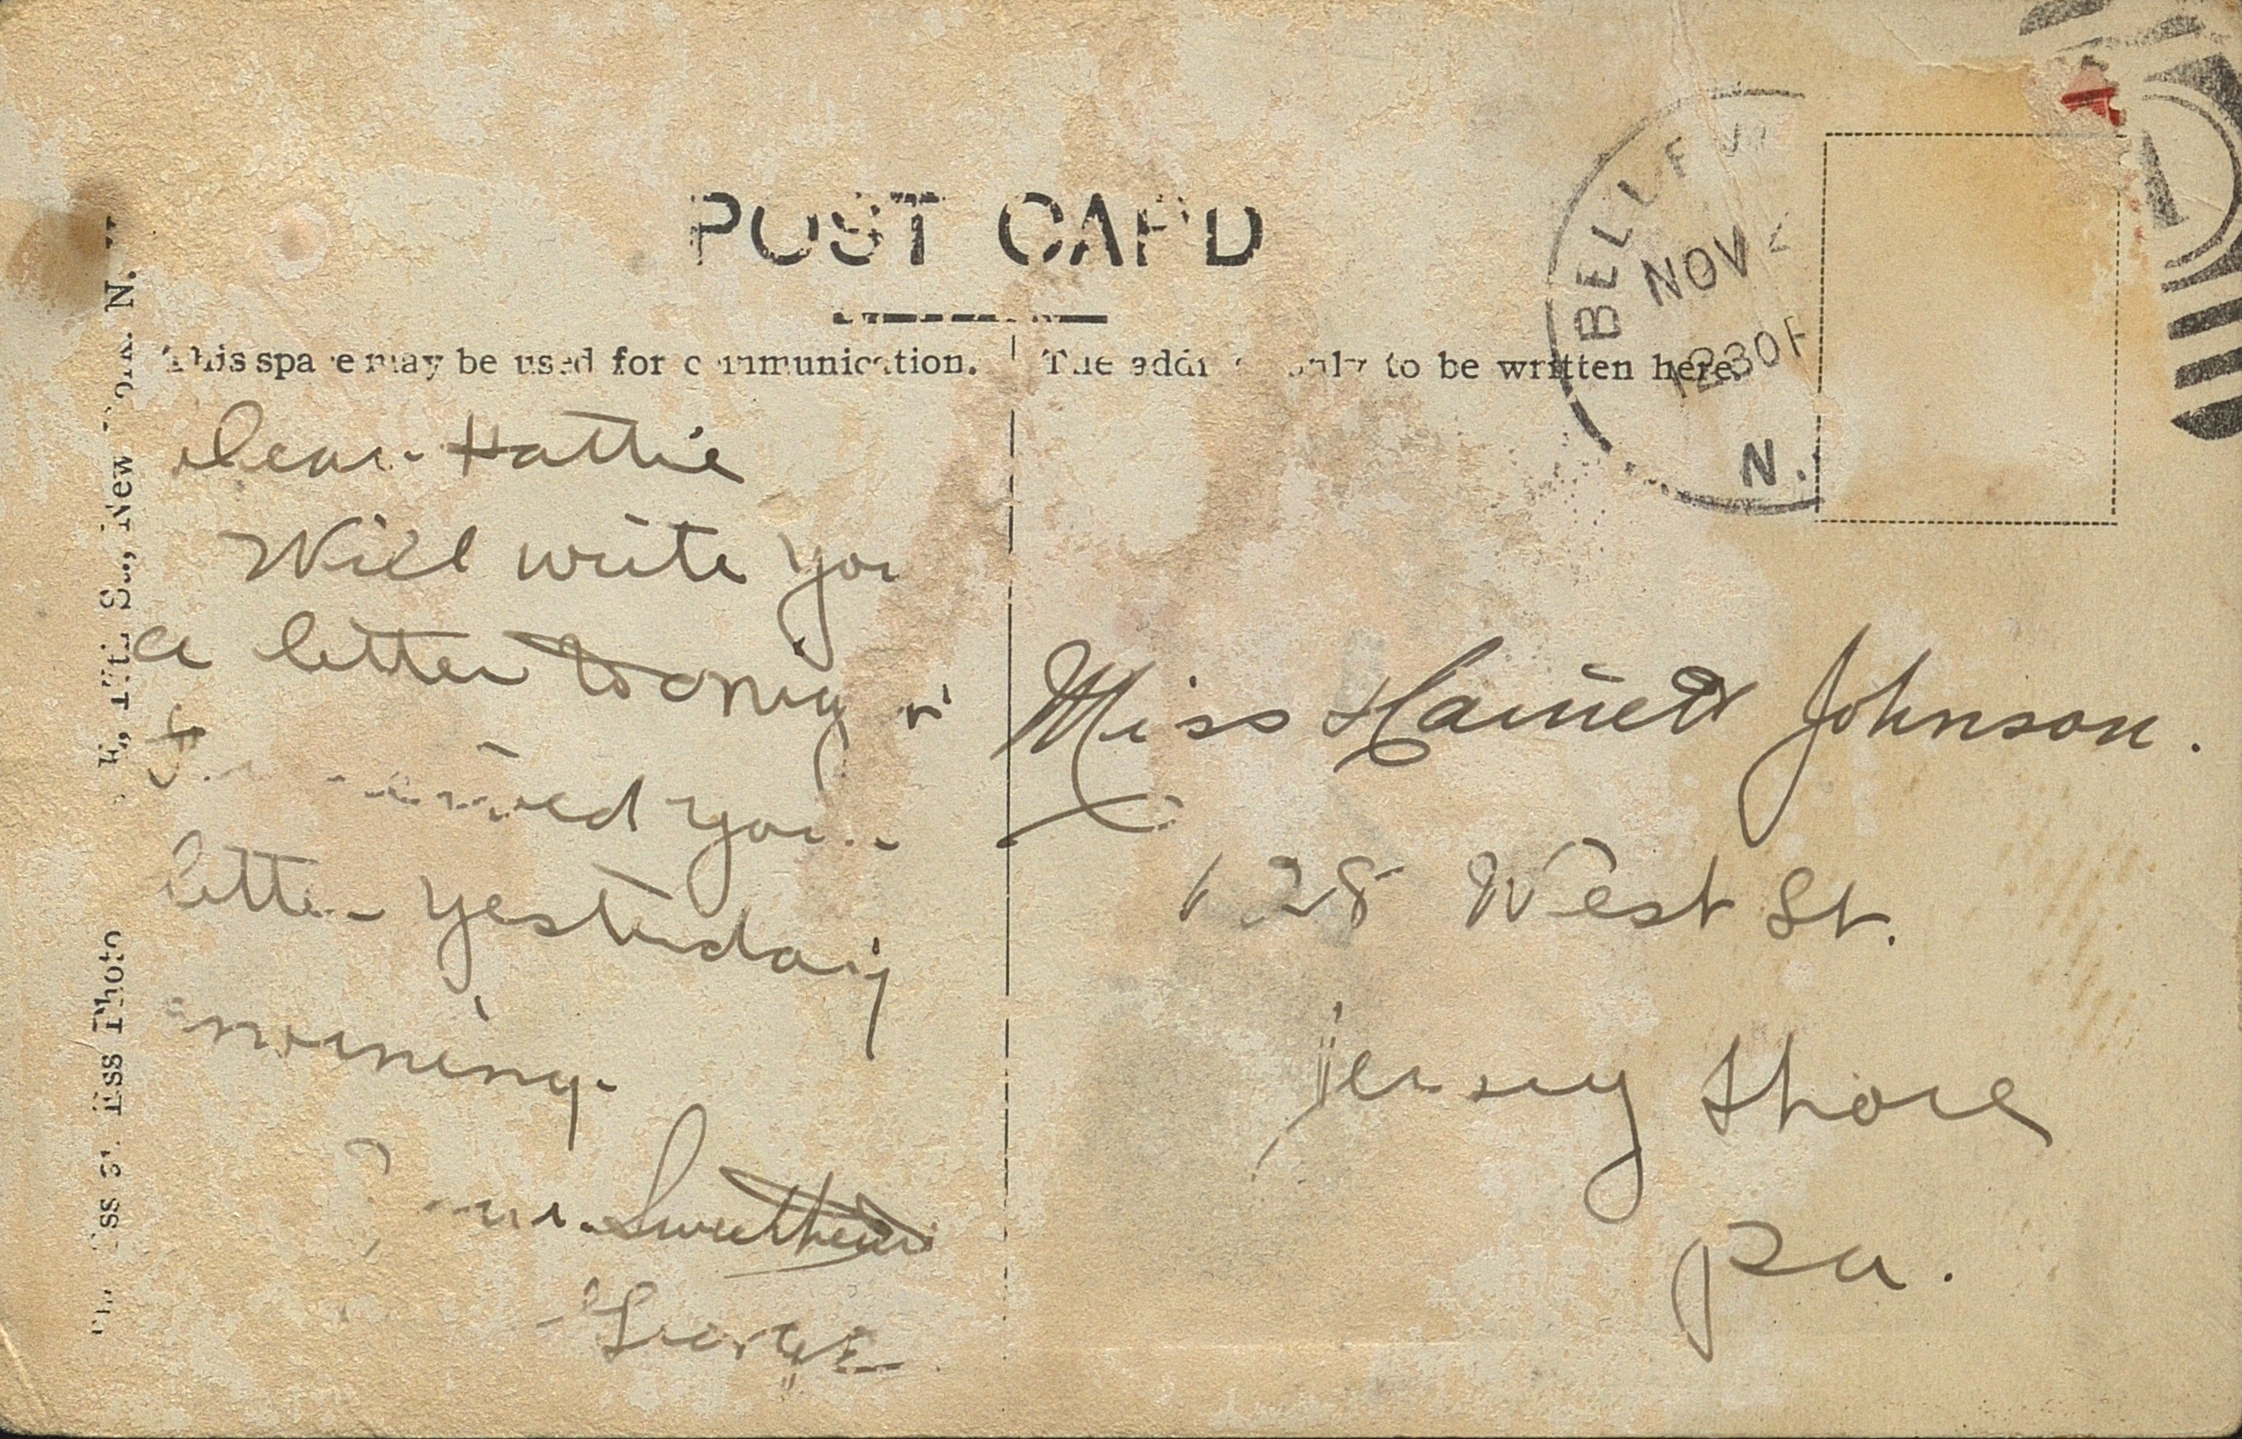 POST CARD
This space may be used for communication.
The address only to be written here.
BELLEV
NOV 2
1230P
N.
Dear Hattie
Will write you
a letter tonight
I received your
letter yesterday
morning.
Your Sweetheart
George
Miss Harriett Johnson.
128 West St.
Jersey Shore
Pa.
Photo
New York N. Y.